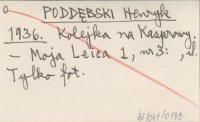 PODDĘBSKI Henryk
1936. Kolejka na Kasprowy.
- Moja Leica 1, nr 3: , il.
Tylko fot.